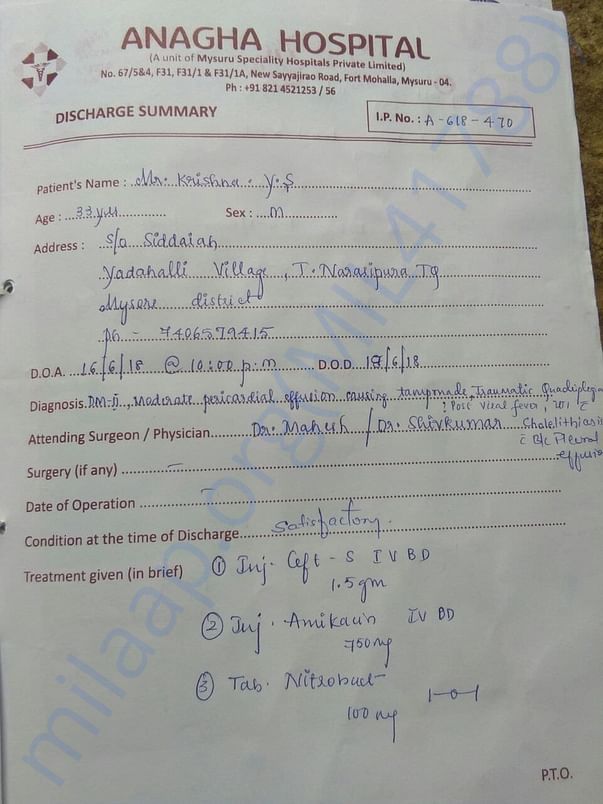 ANAGHA HOSPITAL
(A unit of Mysuru Speciality Hospitals Private Limited)
No. 67/5&4, F31, F31/1 & F31/1A, New Sayyajirao Road, Fort Mohalla, Mysuru - 04.
Ph : +91 821 4521253 / 56
DISCHARGE SUMMARY
I.P. No. : A-618-470
Patient's Name : Mr. Krishna. Y.S
Age : 33 yrs Sex : M
Address : S/o Siddaiah
Yadahalli Village, T. Narasipura Tq
Mysore district
Ph - 7406579415
D.O.A. 16/6/18 @ 10:00 p.m D.O.D. 19/6/18
Diagnosis. DM-II, Moderate pericardial effusion causing tamponade, Traumatic Quadiplegia
? Post viral fever, c
Attending Surgeon / Physician Dr. Mahesh / Dr. Shivkumar Cholelithiasis
c B/L Pleural effusion
Surgery (if any) —
Date of Operation —
Condition at the time of Discharge Satisfactory.
Treatment given (in brief) ① Inj. Ceft-S IV BD
1.5 gm
② Inj. Amikacin IV BD
750 mg
③ Tab. Nitrobact 1-0-1
100 mg
P.T.O.
milaap.org(MIL41788)